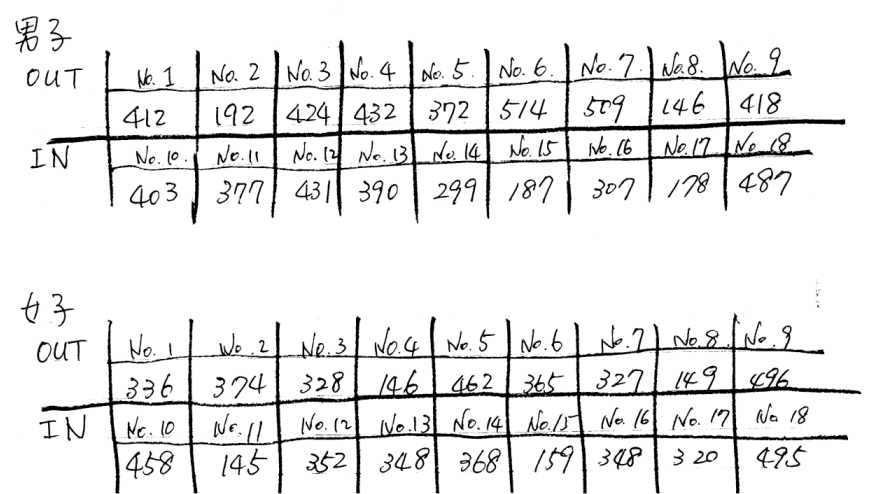 男子
OUT No.1 No.2 No.3 No.4 No.5. No.6. No.7. No.8. No.9
412 192 424 432 372 514 509 146 418
IN No.10. No.11 No.12 No.13 No.14 No.15 No.16 No.17 No.18
403 377 431 390 299 187 307 178 487
女子
OUT No.1 No.2 No.3 No.4 No.5 No.6 No.7 No.8. No.9
336 374 328 146 462 365 327 149 496
IN No.10 No.11 No.12 No.13 No.14 No.15 No.16 No.17 No 18
458 145 352 348 368 159 348 320 495